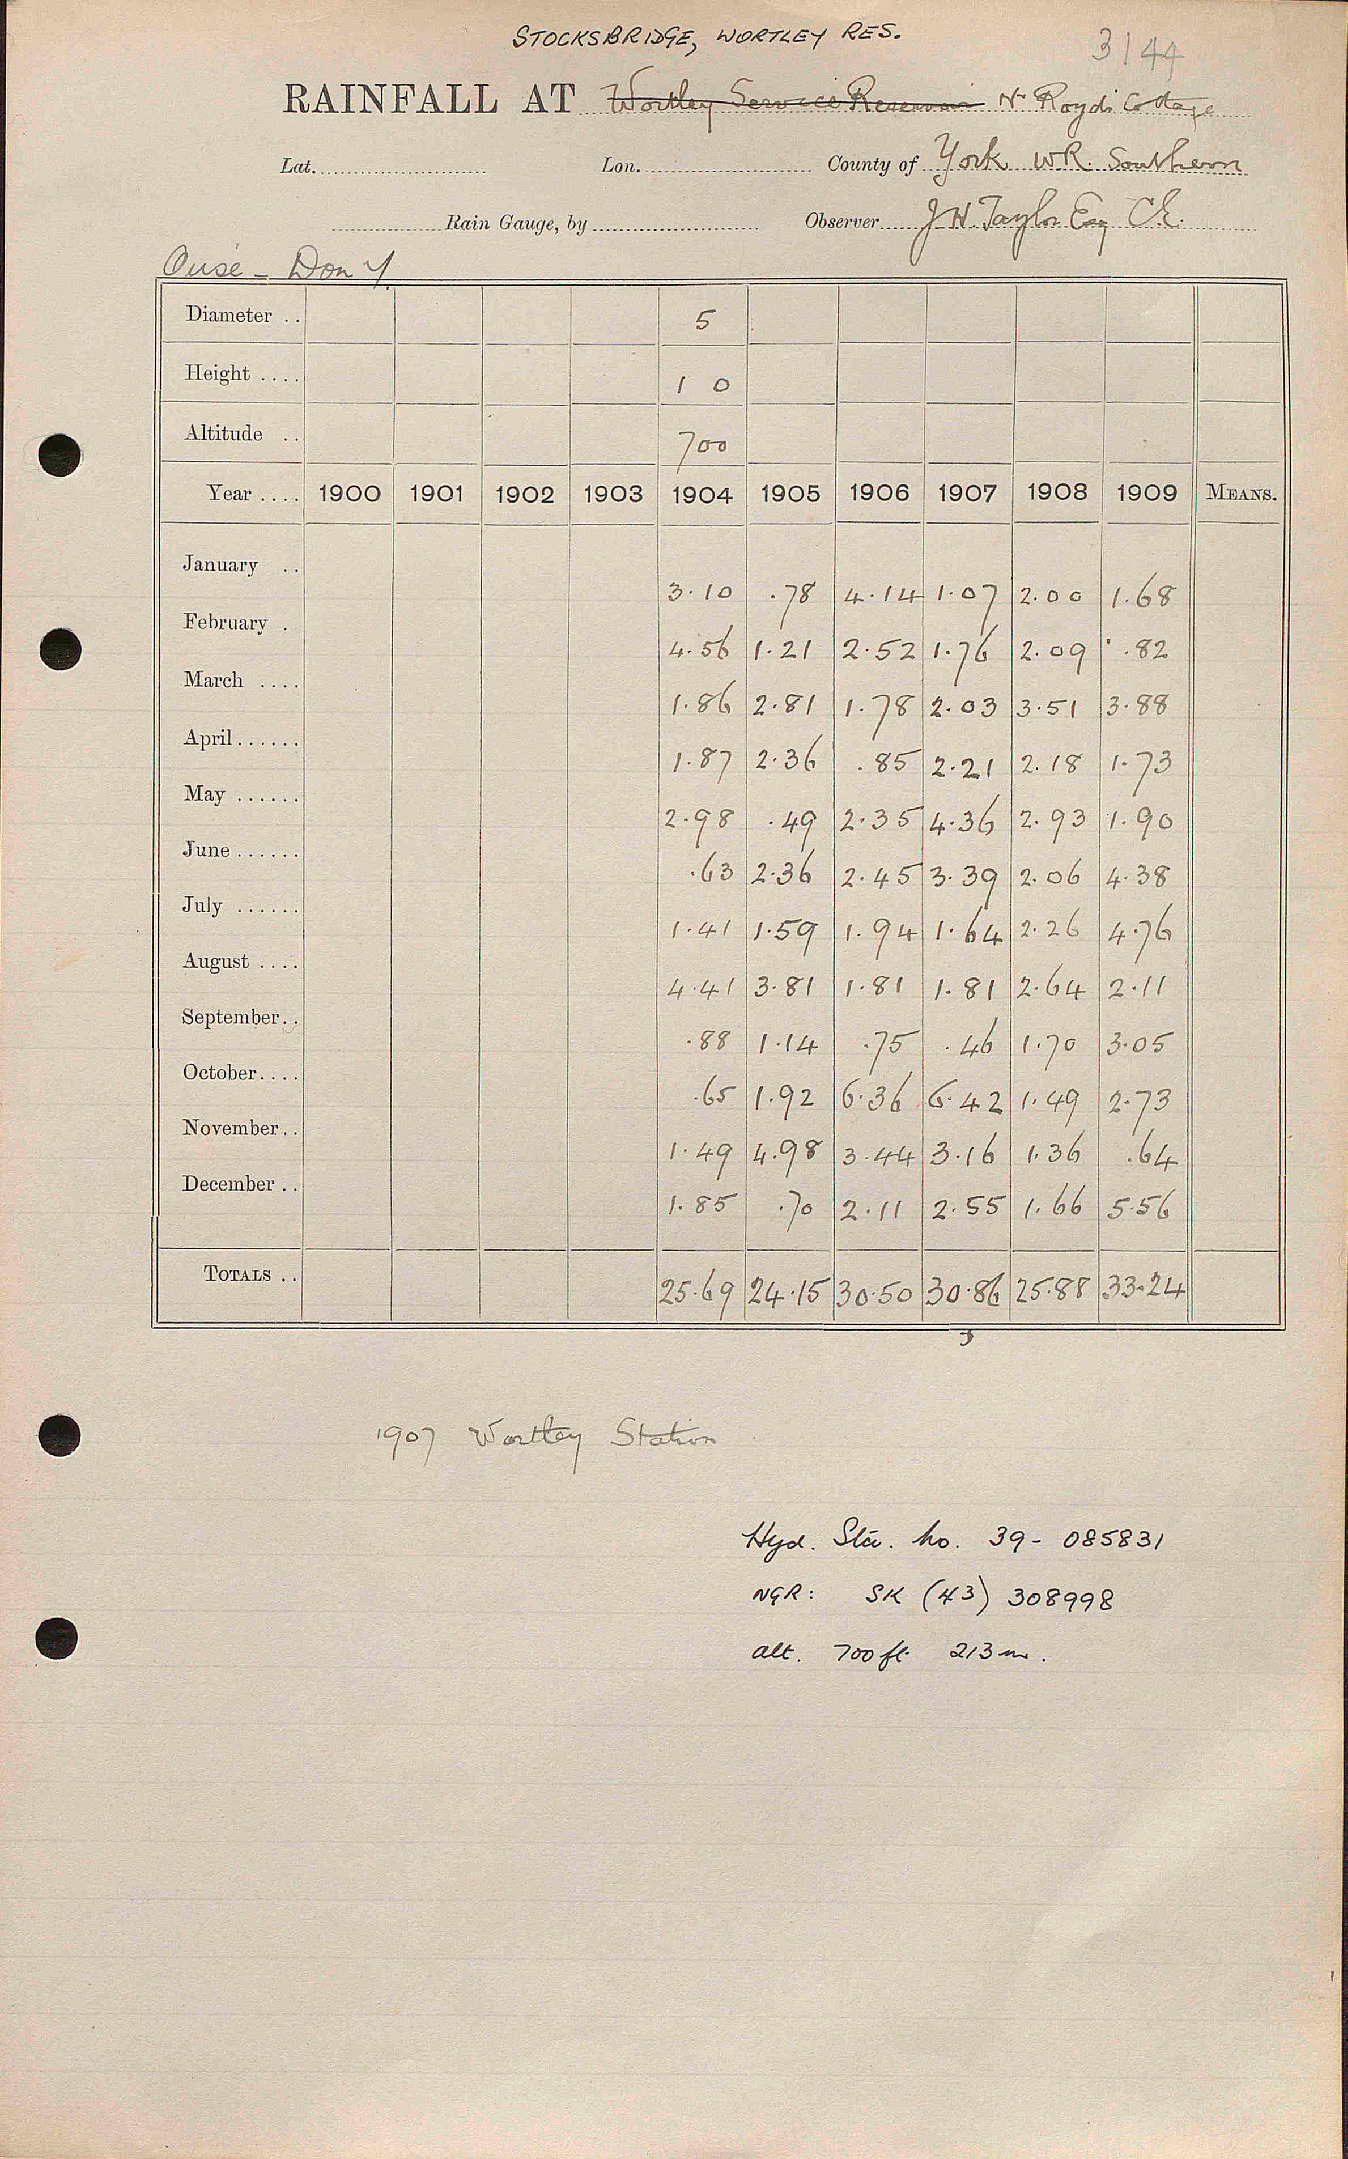 STOCKSBRIDGE, WORTLEY RES.
3144
RAINFALL AT Wortley Service Reservoir Nr Royds Cottage
Lat. Lon. County of York W.R. Southern
Rain Gauge, by Observer J H. Taylor Esq C.E.
Ouse - Don Y
Diameter .. 5
Height .... 1 0
Altitude .. 700
Year .... 1900 1901 1902 1903 1904 1905 1906 1907 1908 1909 MEANS.
January .. 3.10 .78 4.14 1.07 2.00 1.68
February . 4.56 1.21 2.52 1.76 2.09 .82
March .... 1.86 2.81 1.78 2.03 3.51 3.88
April...... 1.87 2.36 .85 2.21 2.18 1.73
May ...... 2.98 .49 2.35 4.36 2.93 1.90
June...... .63 2.36 2.45 3.39 2.06 4.38
July ...... 1.41 1.59 1.94 1.64 2.26 4.76
August .... 4.41 3.81 1.81 1.81 2.64 2.11
September.. .88 1.14 .75 .46 1.70 3.05
October.... .65 1.92 6.36 6.42 1.49 2.73
November.. 1.49 4.98 3.44 3.16 1.36 .64
December .. 1.85 .70 2.11 2.55 1.66 5.56
TOTALS .. 25.69 24.15 30.50 30.86 25.88 33.24
1907 Wortley Station
Hyd. Sta. No. 39- 085831
NGR: SK (43) 308998
alt. 700ft 213m.